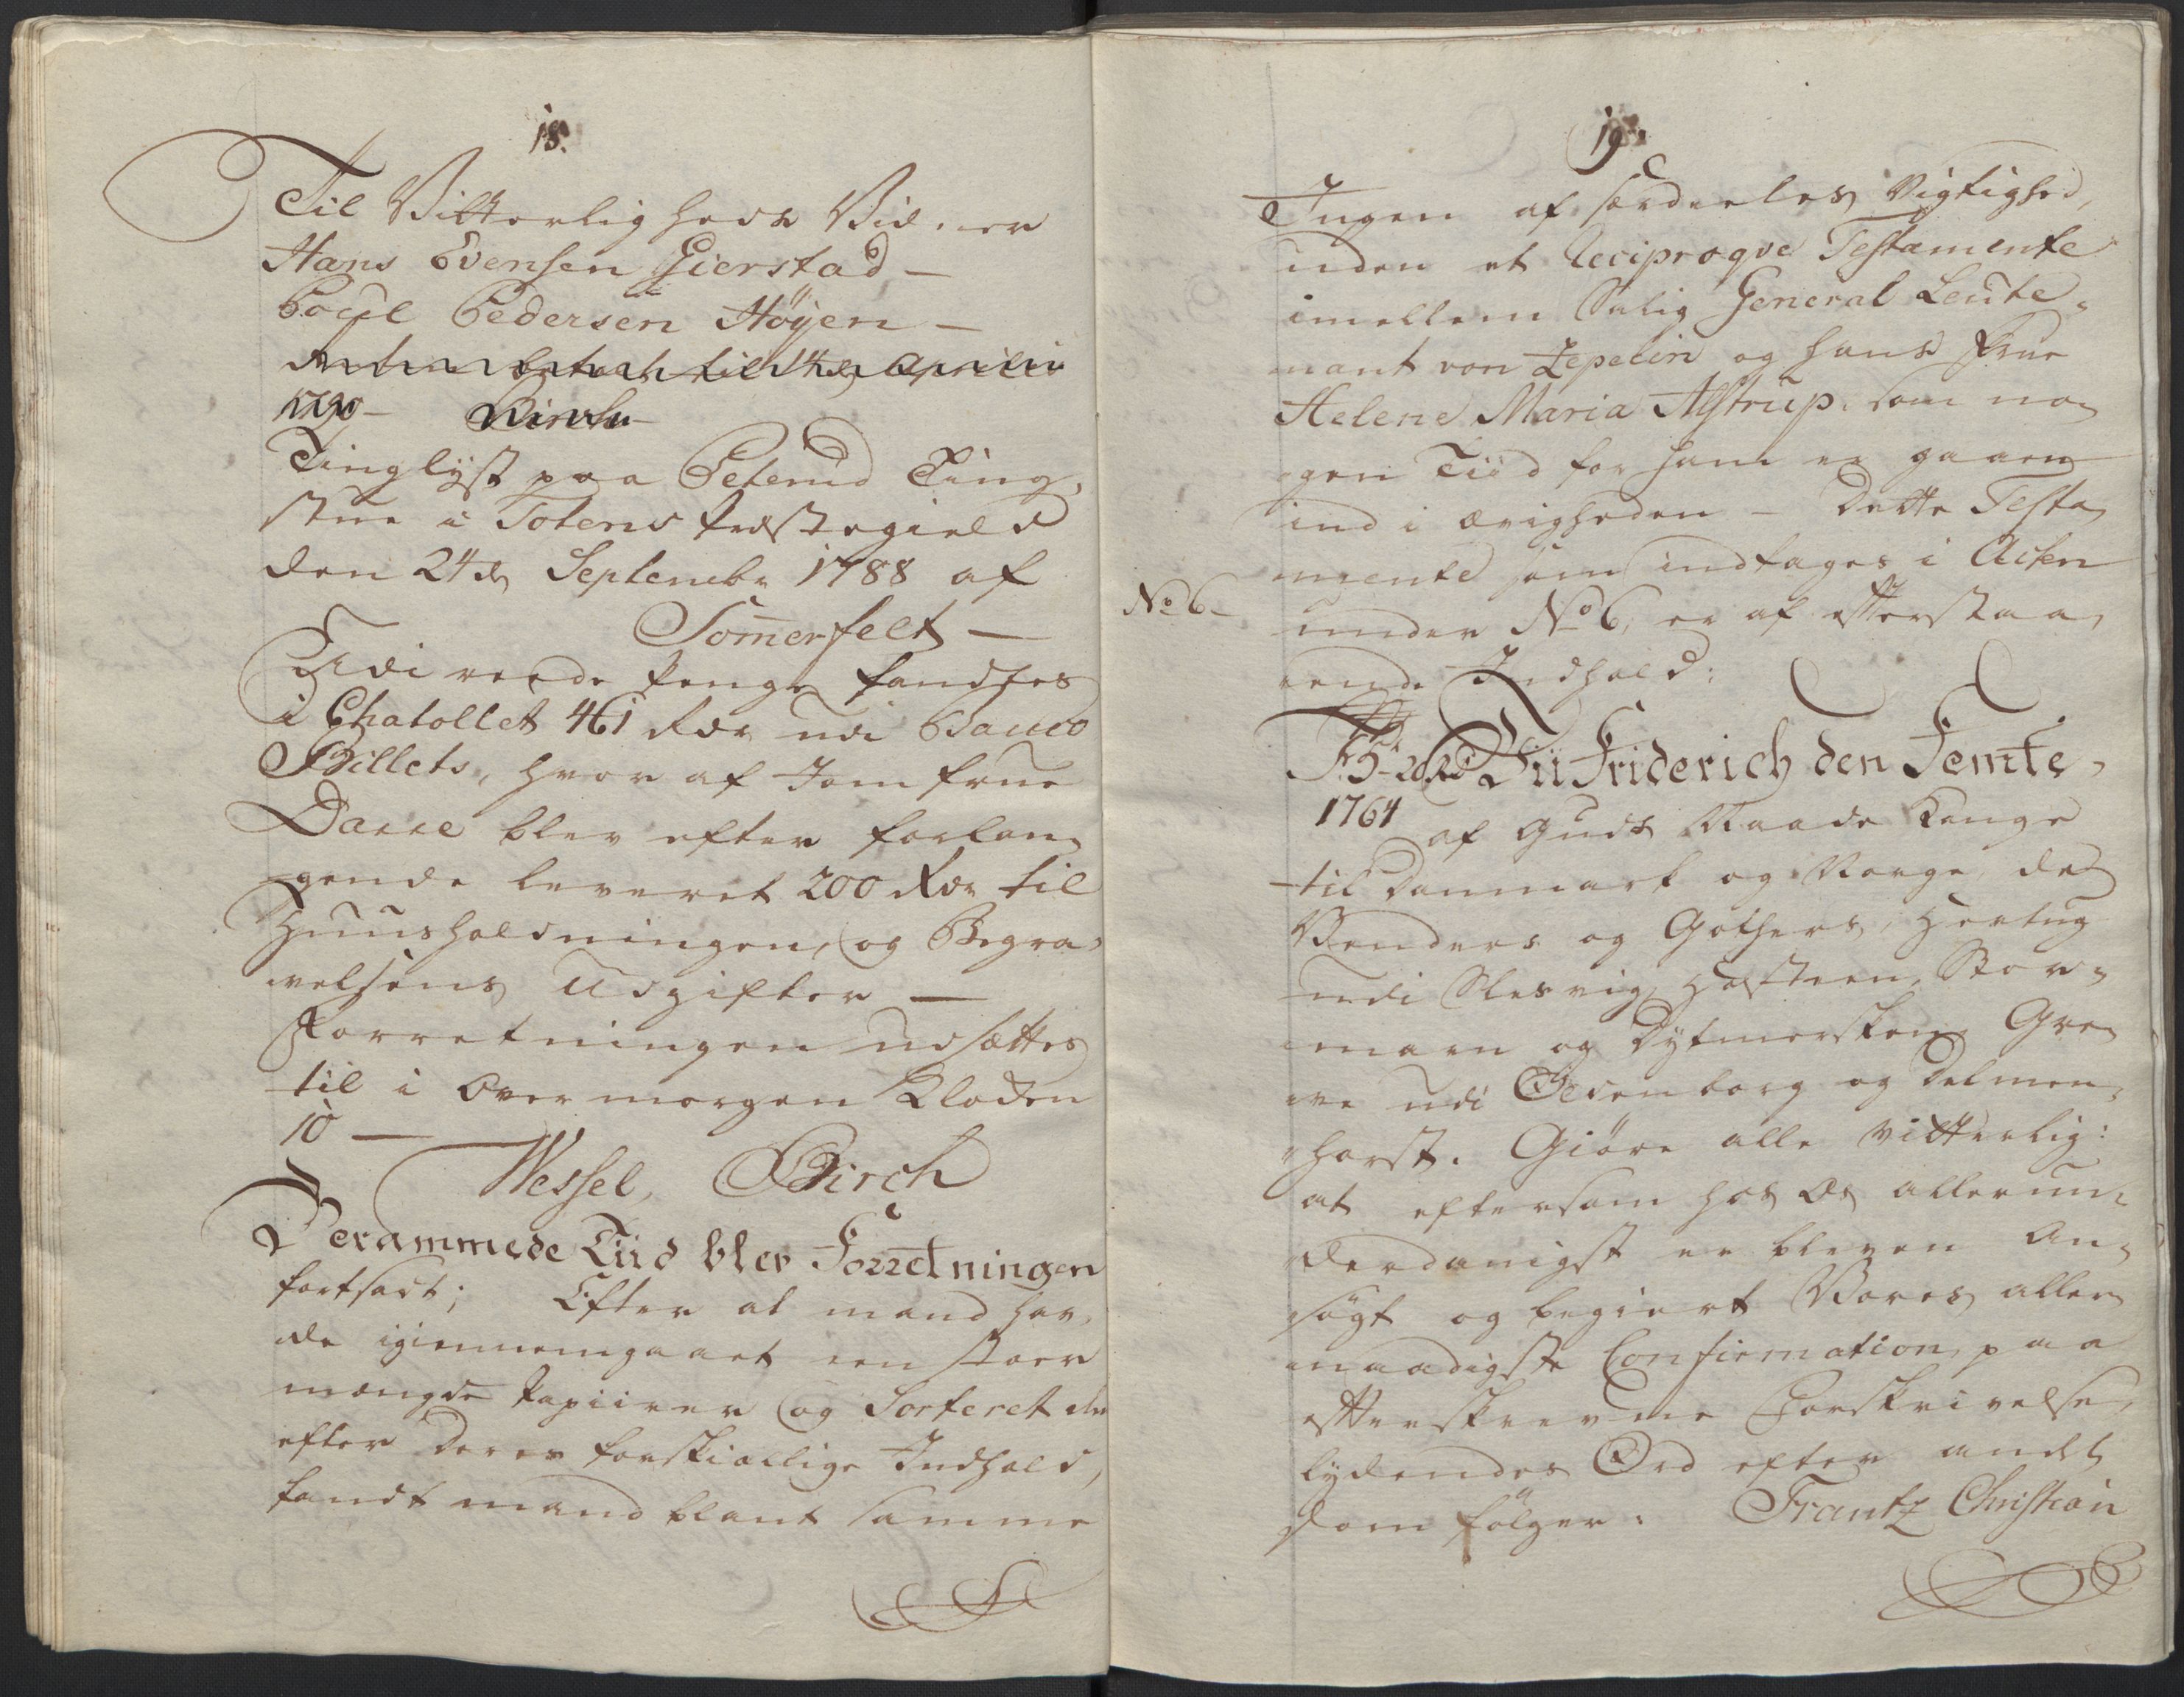 18.
Til Vitterligheds Vidner
Hans Evensen Gierstad —
Poul Pedersen Höyen —
betalt til 14de Aprilis
1790 —
Tinglyst paa Peterud Ting,
stue i Totens Præstegield
den 24de Septembr 1788 af
Somerfelt —
Udi reede Penge fandtes
i Chatollet 461 Rdr udi Banco
Billets, hvor af Jomfrue
Darre blev efter forlan,
gende leveret 200 Rdr til
Huusholdningen, og Begra,
velsens Udgifter —
Forretningen udsættes
til i Over morgen Kloken
10 —
Wessel, Birch
Berammede Tiid blev Forretningen
fortsadt; Efter at mand hav,
de igiennemgaaet een stoer
mængde Papiirer og Sorteret dem
efter deres forskiællige Indhold,
fandt mand blant samme
19
Ingen af særdeeles Vigtighed,
uden et Reciproqve Testamente
imellem Salig General Leute,
nant von Zepelin og hans Frue
Helene Maria Alstrup, som no,
gen Tiid for ham er gaaen
ind i ævigheden — Dette Testa,
mente som indtages i Acten
No 6 —
under No 6, er af efterstaa,
ende Indhold:
F:5 – 20 Rd Vii Friderich den Femte,
1764
af Guds Naade Konge
til Danmark og Norge, de
Venders og Gothers, Hertug
udi Slesvig, Holsteen, Stor,
marn og Dytmersken, Gre,
ve udi Oldenborg og Delmen,
horst. Giöre alle vitterlig:
at eftersom hos Os allerun,
derdanigst er bleven An,
søgt og begiert Vores aller
naadigste Confirmation paa
efterskrevne Forskrivelse,
lydendes Ord efter andet
som fölger: Frantz Christian